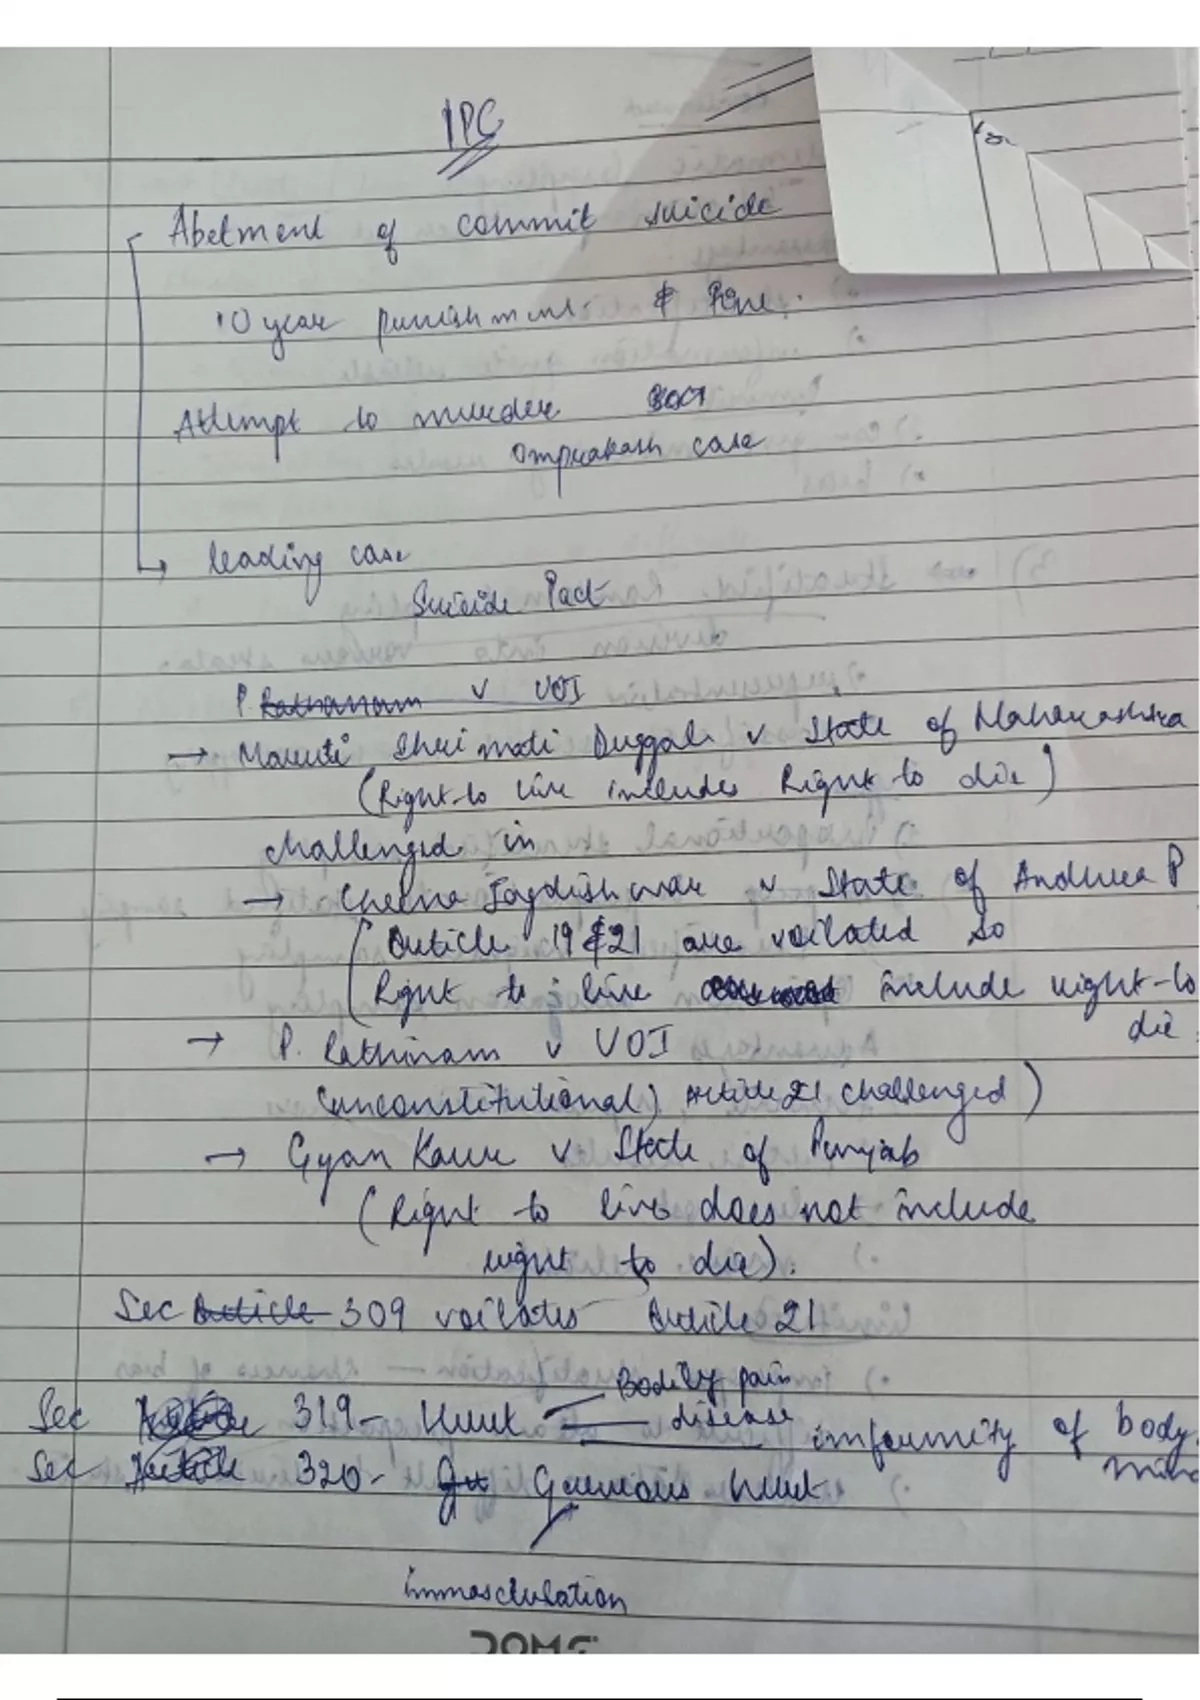 IPC
Abetment of commit suicide
10 year punishment & Fine.
Attempt to murder 307
Omprakash case
leading case
Suicide Pact
P. Rathanam v UOI
→ Maruti Shri mati Duggal v State of Maharashtra
(Right to live includes Right to die)
challenged in
→ Cheena Jagdishwar v State of Andhra P
(Article 19 & 21 are voilated so
Right to live include right to
die
→ P. Rathinam v UOI
(unconstitutional) Article 21 challenged)
→ Gyan Kaur v State of Punjab
(Right to live does not include
right to die).
Sec Article 309 voilates Article 21
Bodily pain
Sec 319 - Hurt disease infirmity of body.
Sec Article 320 - Gr Grievous hurt
immasclulation
DOMS